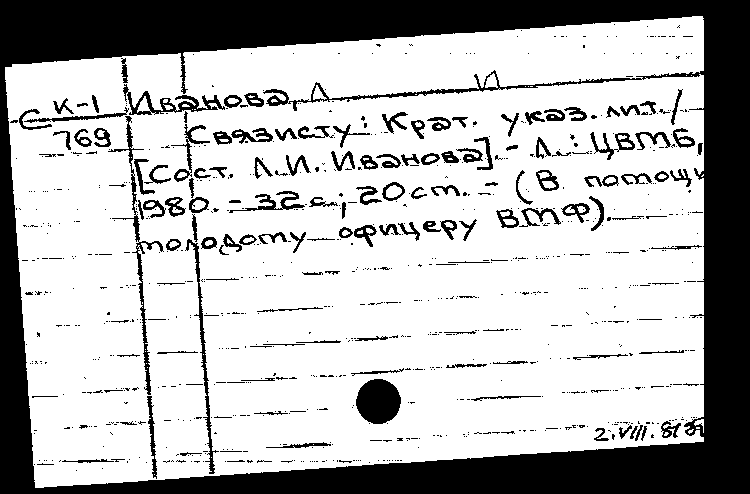 С К-1 Иванова, Л И
769 Связисту: Крат. указ. лит./
[Сост. Л.И. Иванова]. - Л.: ЦВМБ,
1980. - 32 с.; 20 ст. - (В помощи
молодому офицеру ВМФ).
2.VIII.81